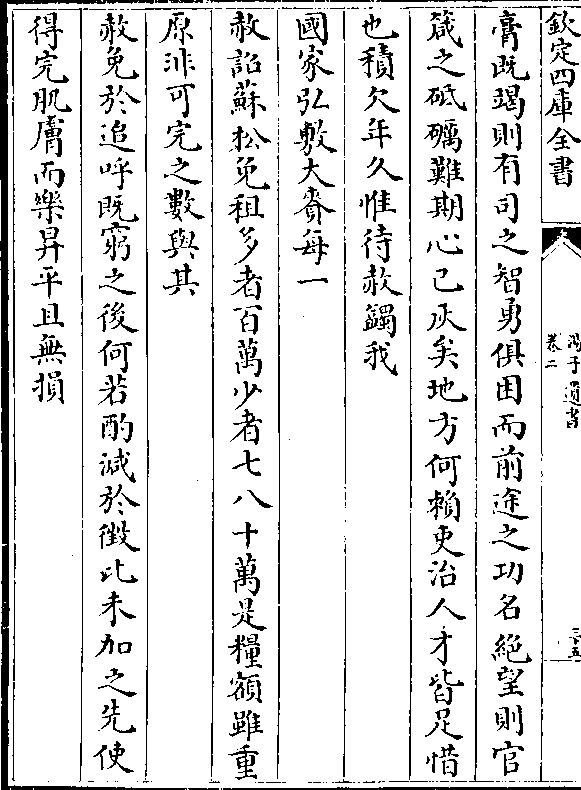 欽定四庫全書
湯子遺書
卷二
三十五
膏既竭則有司之智勇俱困而前途之功名絕望則官
箴之砥礪難期心已灰矣地方何賴吏治人才皆足惜
也積欠年久惟待赦蠲我
國家弘敷大賚每一
赦詔蘇松免租多者百萬少者七八十萬是糧額雖重
原非可完之數與其
赦免於追呼既窮之後何若酌減於徴比未加之先使
得完肌膚而樂昇平且無損